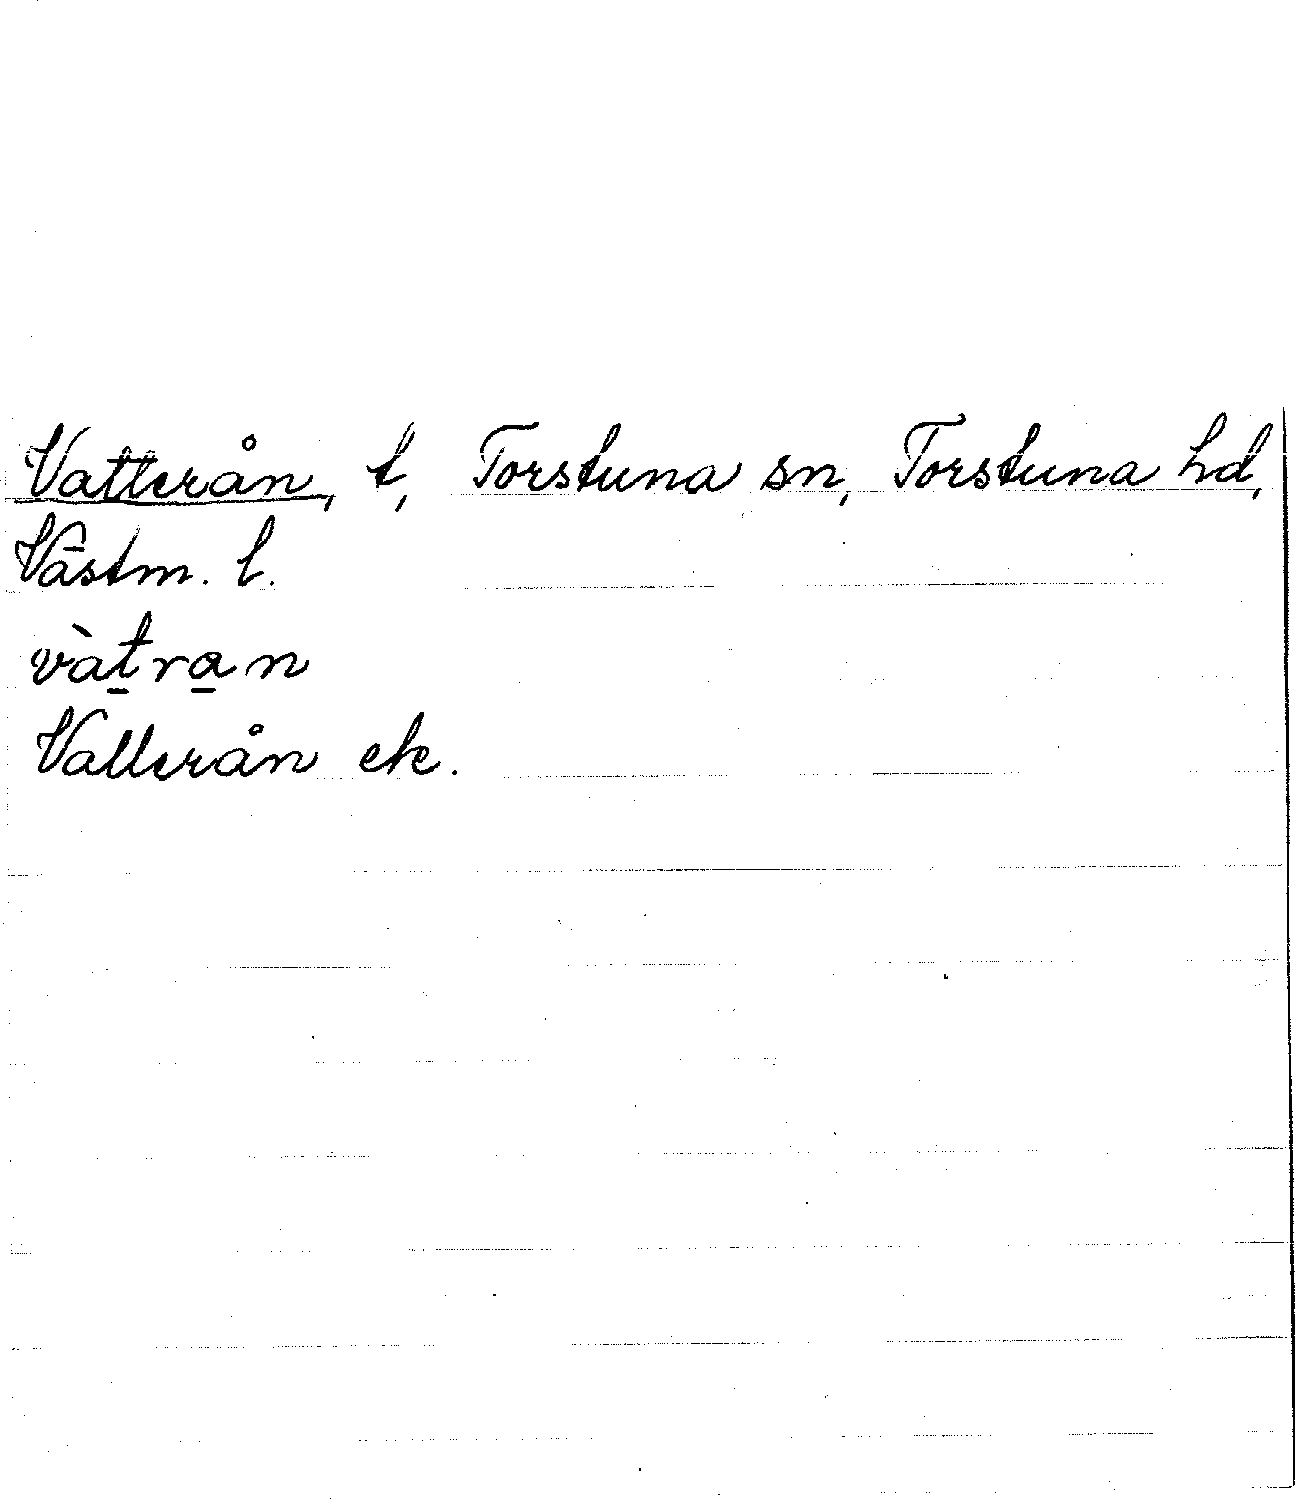 Vatterån, t, Torstuna sn, Torstuna hd,
Västm. l.
vàt̠ra̠n
Vallerån ek.